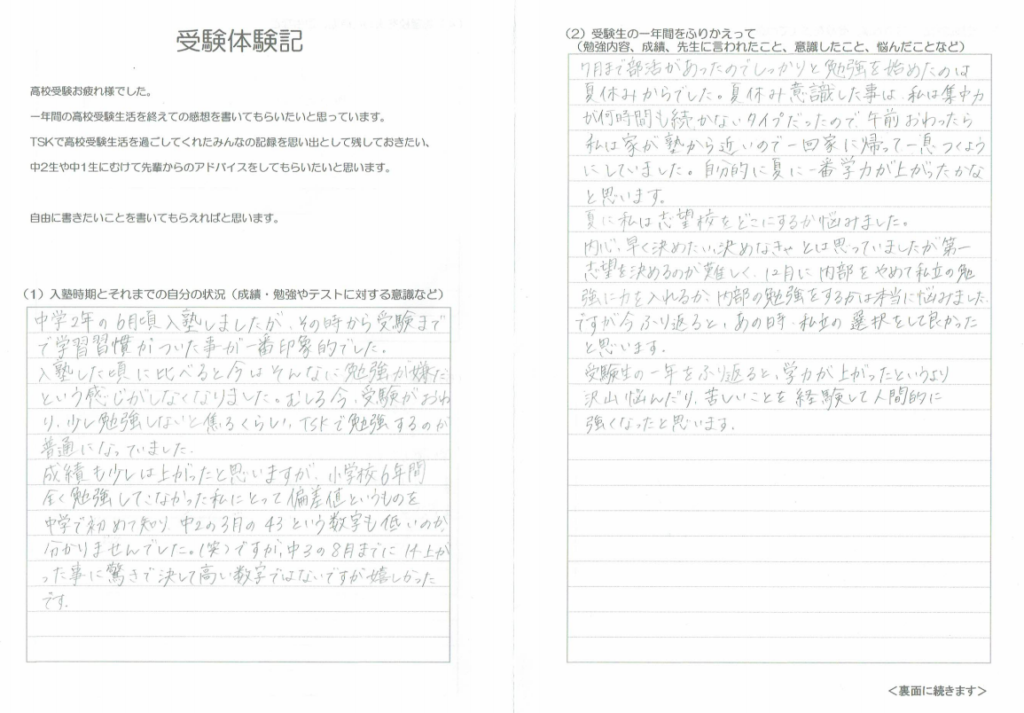 受験体験記
高校受験お疲れ様でした。
一年間の高校受験生活を終えての感想を書いてもらいたいと思っています。
TSKで高校受験生活を過ごしてくれたみんなの記録を思い出として残しておきたい、
中2生や中1生にむけて先輩からのアドバイスをしてもらいたいと思います。
自由に書きたいことを書いてもらえればと思います。
(1)入塾時期とそれまでの自分の状況(成績・勉強やテストに対する意識など)
中学2年の6月頃入塾しましたが、その時から受験まで
で学習習慣がついた事が一番印象的でした。
入塾した頃に比べると今はそんなに勉強が嫌だ
という感じがしなくなりました。むしろ今、受験がおわ
り、少し勉強しないと焦るくらい、TSKで勉強するのが
普通になっていました.
成績も少しは上がったと思いますが、小学校6年間
全く勉強してこなかった私にとって偏差値というものを
中学で初めて知り、中2の3月の43という数字も低いのか、
分かりませんでした。(笑)ですが、中3の8月までに14上が
った事に驚きで決して高い数字ではないですが嬉しかった
です.
(2)受験生の一年間をふりかえって
(勉強内容、成績、先生に言われたこと、意識したこと、悩んだことなど)
7月まで部活があったのでしっかりと勉強を始めたのは
夏休みからでした。夏休み意識した事は、私は集中力
が何時間も続かないタイプだったので、午前おわったら
私は家が塾から近いので一回家に帰って一息つくよう
にしていました。自分的に夏に一番学力が上がったかな
と思います。
夏に私は志望校をどこにするか悩みました。
内心、早く決めたい、決めなきゃとは思っていましたが第一
志望を決めるのが難しく、12月に内部をやめて私立の勉
強に力を入れるか、内部の勉強をするかは本当に悩みました.
ですが今ふり返ると、あの時、私立の選択をして良かった
と思います.
受験生の一年をふり返ると、学力が上がったというより
沢山悩んだり、苦しいことを経験して人間的に
強くなったと思います.
<裏面に続きます>